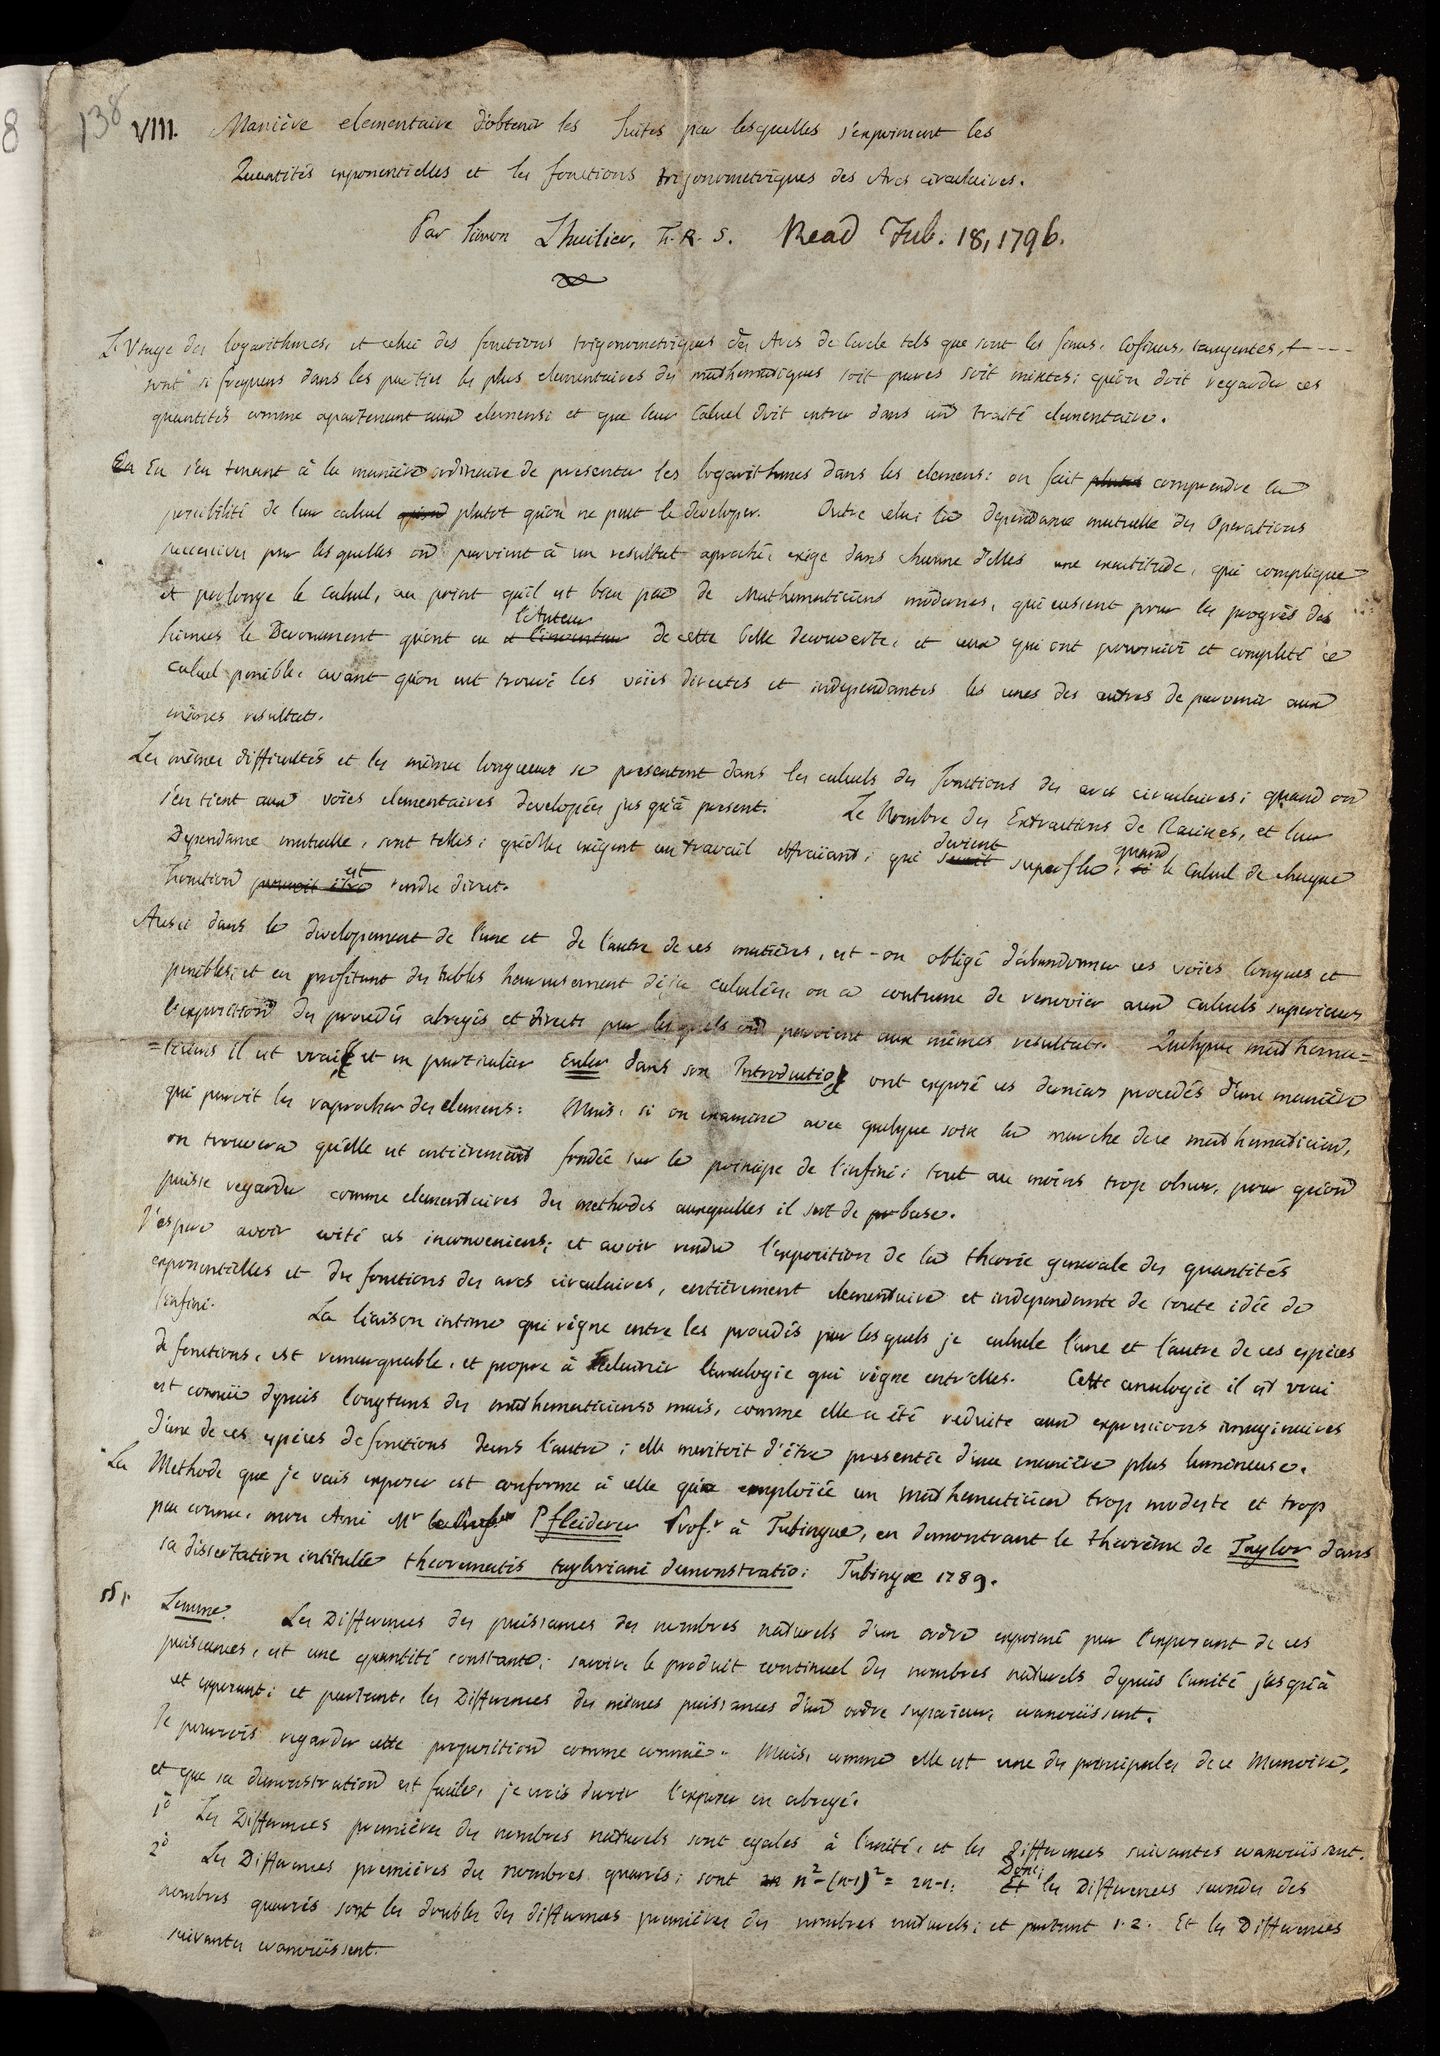 8
138
VIII. Maniére elementaire d'obtenir les Suites par lesquelles s'expriment les
Quantités exponentielles et les fonctions trigonometriques des Arcs circulaires.
Par Simon Lhuilier, F. R. S. Read Feb. 18, 1796.
L'Usage des logarithmes, et celui des fonctions trigonometriques des Arcs de Cercle tels que sont les sinus, cosinus, tangentes, &----
sont si frequens dans les parties les plus elementaires des mathematiques soit pures soit mixtes; qu'on doit regarder ces
quantités comme apartenant aux elemens; et que leur Calcul doit entrer dans un traité elementaire.
En En s'en tenant à la maniére ordinaire de presenter les logarithmes dans les elemens: on fait plutot comprendre la
possibilité de leur calcul plutot qu'on ne peut le developer. Outre cela: la dependance mutuelle des Operations
successives par lesquelles on parvient à un resultat aproché, exige dans chacune d'elles une exactitude, qui complique
et prolonge le Calcul, au point qu'il est bien peu de Mathematiciens modernes, qui eussent pour les progrès des
Sciences le Devouement qu'ont eu l'Auteur et l'inventeur de cette belle decouverte, et ceux qui ont poursuivi et completé ce
calcul penible, avant qu'on eut trouvé les voies directes et independantes les unes des autres de parvenir aux
mêmes resultats.
Les mêmes difficultés et les mêmes longueurs se presentent dans les calculs des fonctions des arcs circulaires; quand on
s'en tient aux voies elementaires developées jusqu'à present. Le Nombre des Extractions de Racines, et leur
Dependance mutuelle, sont telles; qu'elles exigent un travail effraïant; qui devient seroit superflu, quand si le Calcul de chaque
Fonction est pouvoit être rendre direct.
Aussi dans le developement de l'une et de l'autre de ces matiéres, est-on obligé d'abandonner ces voïes longues et
penibles; et en profitant des tables heureusement déja calculées, on a coutume de renvoïer aux Calculs superieurs
l'exposition des procedés abregés et directs par lesquels on parvient aux mêmes resultats. Quelques mathema=
=ticiens il est vrai, et en particulier Euler dans son Introductio, ont exposé ces derniers procedés d'une maniére
qui paroit les raprocher des elemens: Mais, si on examine avec quelque soin la marche de ce mathematicien,
on trouvera qu'elle est entiérement fondée sur le principe de l'infini; tout au moins trop obscur, pour qu'on
puisse regarder comme elementaires des methodes auxquelles il sert de base.
J'espere avoir evité ces inconveniens; et avoir rendu l'exposition de la theorie generale des quantités
exponentielles et des fonctions des arcs circulaires, entiérement elementaire et independante de toute idée de
l'infini. La liaison intime qui régne entre les procedés par lesquels je calcule l'une et l'autre de ces espéces
de fonctions, est remarquable, et propre à eclaircir l'analogie qui régne entr'elles. Cette analogie il est vrai
est connuë depuis longtems des mathematiciens; mais, comme elle a été reduite aux expressions imaginaires
d'une de ces espéces de fonctions dans l'autre; elle meritoit d'être presentée d'une maniére plus lumineuse.
La Methode que je vais exposer est conforme à celle qu'a emploïée un mathematicien trop modeste et trop
peu connu, mon Ami Mr Pfleiderer Prof.r à Tubingue, en demontrant le theorême de Taylor dans
sa dissertation intitulée theorematis tayloriani demonstratio: Tubingæ 1789.
§ 1. Lemme. Les Differences des puissances des nombres naturels d'un ordre exprimé par l'exposant de ces
puissances, est une quantité constante; savoir, le produit continuel des nombres naturels depuis l'unité jusqu'à
cet exposant; et partant, les Differences des mêmes puissances d'un ordre superieur, evanouïssent.
Je pourrois regarder cette proposition comme connuë. Mais, comme elle est une des principales de ce Memoire,
et que sa demonstration est facile, je crois devoir l'exposer en abregé.
1° Les Differences premiéres des nombres naturels sont egales à l'unité, et les Differences suivantes evanouïssent.
2° Les Differences premiéres des nombres quarrés; sont n² - (n-1)² = 2n-1; Donc; Et les Differences secondes des
nombres quarrés sont les doubles des differences premiéres des nombres naturels; et partant 1.2. Et les Differences
suivantes evanouïssent.